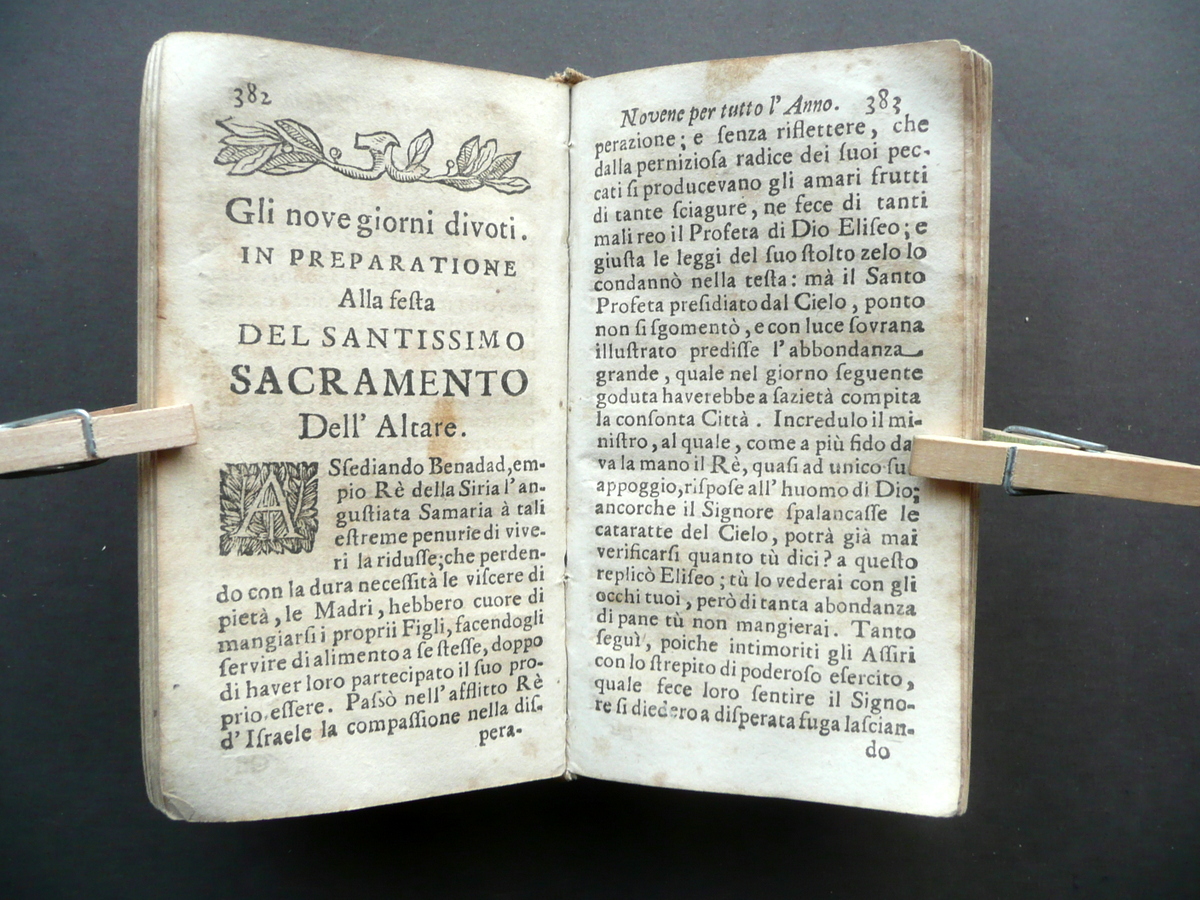 382
Gli nove giorni divoti.
IN PREPARATIONE
Alla feſta
DEL SANTISSIMO
SACRAMENTO
Dell' Altare.
ASſediando Benadad, em-
pio Rè della Siria l'an-
guſtiata Samaria à tali
eſtreme penurie di vive-
ri la riduſſe; che perden-
do con la dura neceſſità le viſcere di
pietà, le Madri, hebbero cuore di
mangiarſi i proprii Figli, facendogli
ſervire di alimento a ſe ſteſſe, doppo
di haver loro partecipato il ſuo pro-
prio eſſere. Paſsò nell'afflitto Rè
d'Iſraele la compaſſione nella diſ-
pera-
Novene per tutto l'Anno. 383
perazione; e ſenza riflettere, che
dalla pernizioſa radice dei ſuoi pec-
cati ſi producevano gli amari frutti
di tante ſciagure, ne fece di tanti
mali reo il Profeta di Dio Eliſeo; e
giuſta le leggi del ſuo ſtolto zelo lo
condannò nella teſta: mà il Santo
Profeta preſidiato dal Cielo, ponto
non ſi ſgomentò, e con luce ſovrana
illuſtrato prediſſe l'abbondanza
grande, quale nel giorno ſeguente
goduta haverebbe a ſazietà compita
la conſonta Città. Incredulo il mi-
niſtro, al quale, come a più fido da
va la mano il Rè, quaſi ad unico ſu
appoggio, riſpoſe all'huomo di Dio;
ancorche il Signore ſpalancaſſe le
cataratte del Cielo, potrà già mai
verificarſi quanto tù dici? a queſto
replicò Eliſeo; tù lo vederai con gli
occhi tuoi, però di tanta abondanza
di pane tù non mangierai. Tanto
ſeguì, poiche intimoriti gli Aſſiri
con lo ſtrepito di poderoſo eſercito,
quale fece loro ſentire il Signo-
re ſi diedero a diſperata fuga laſcian-
do